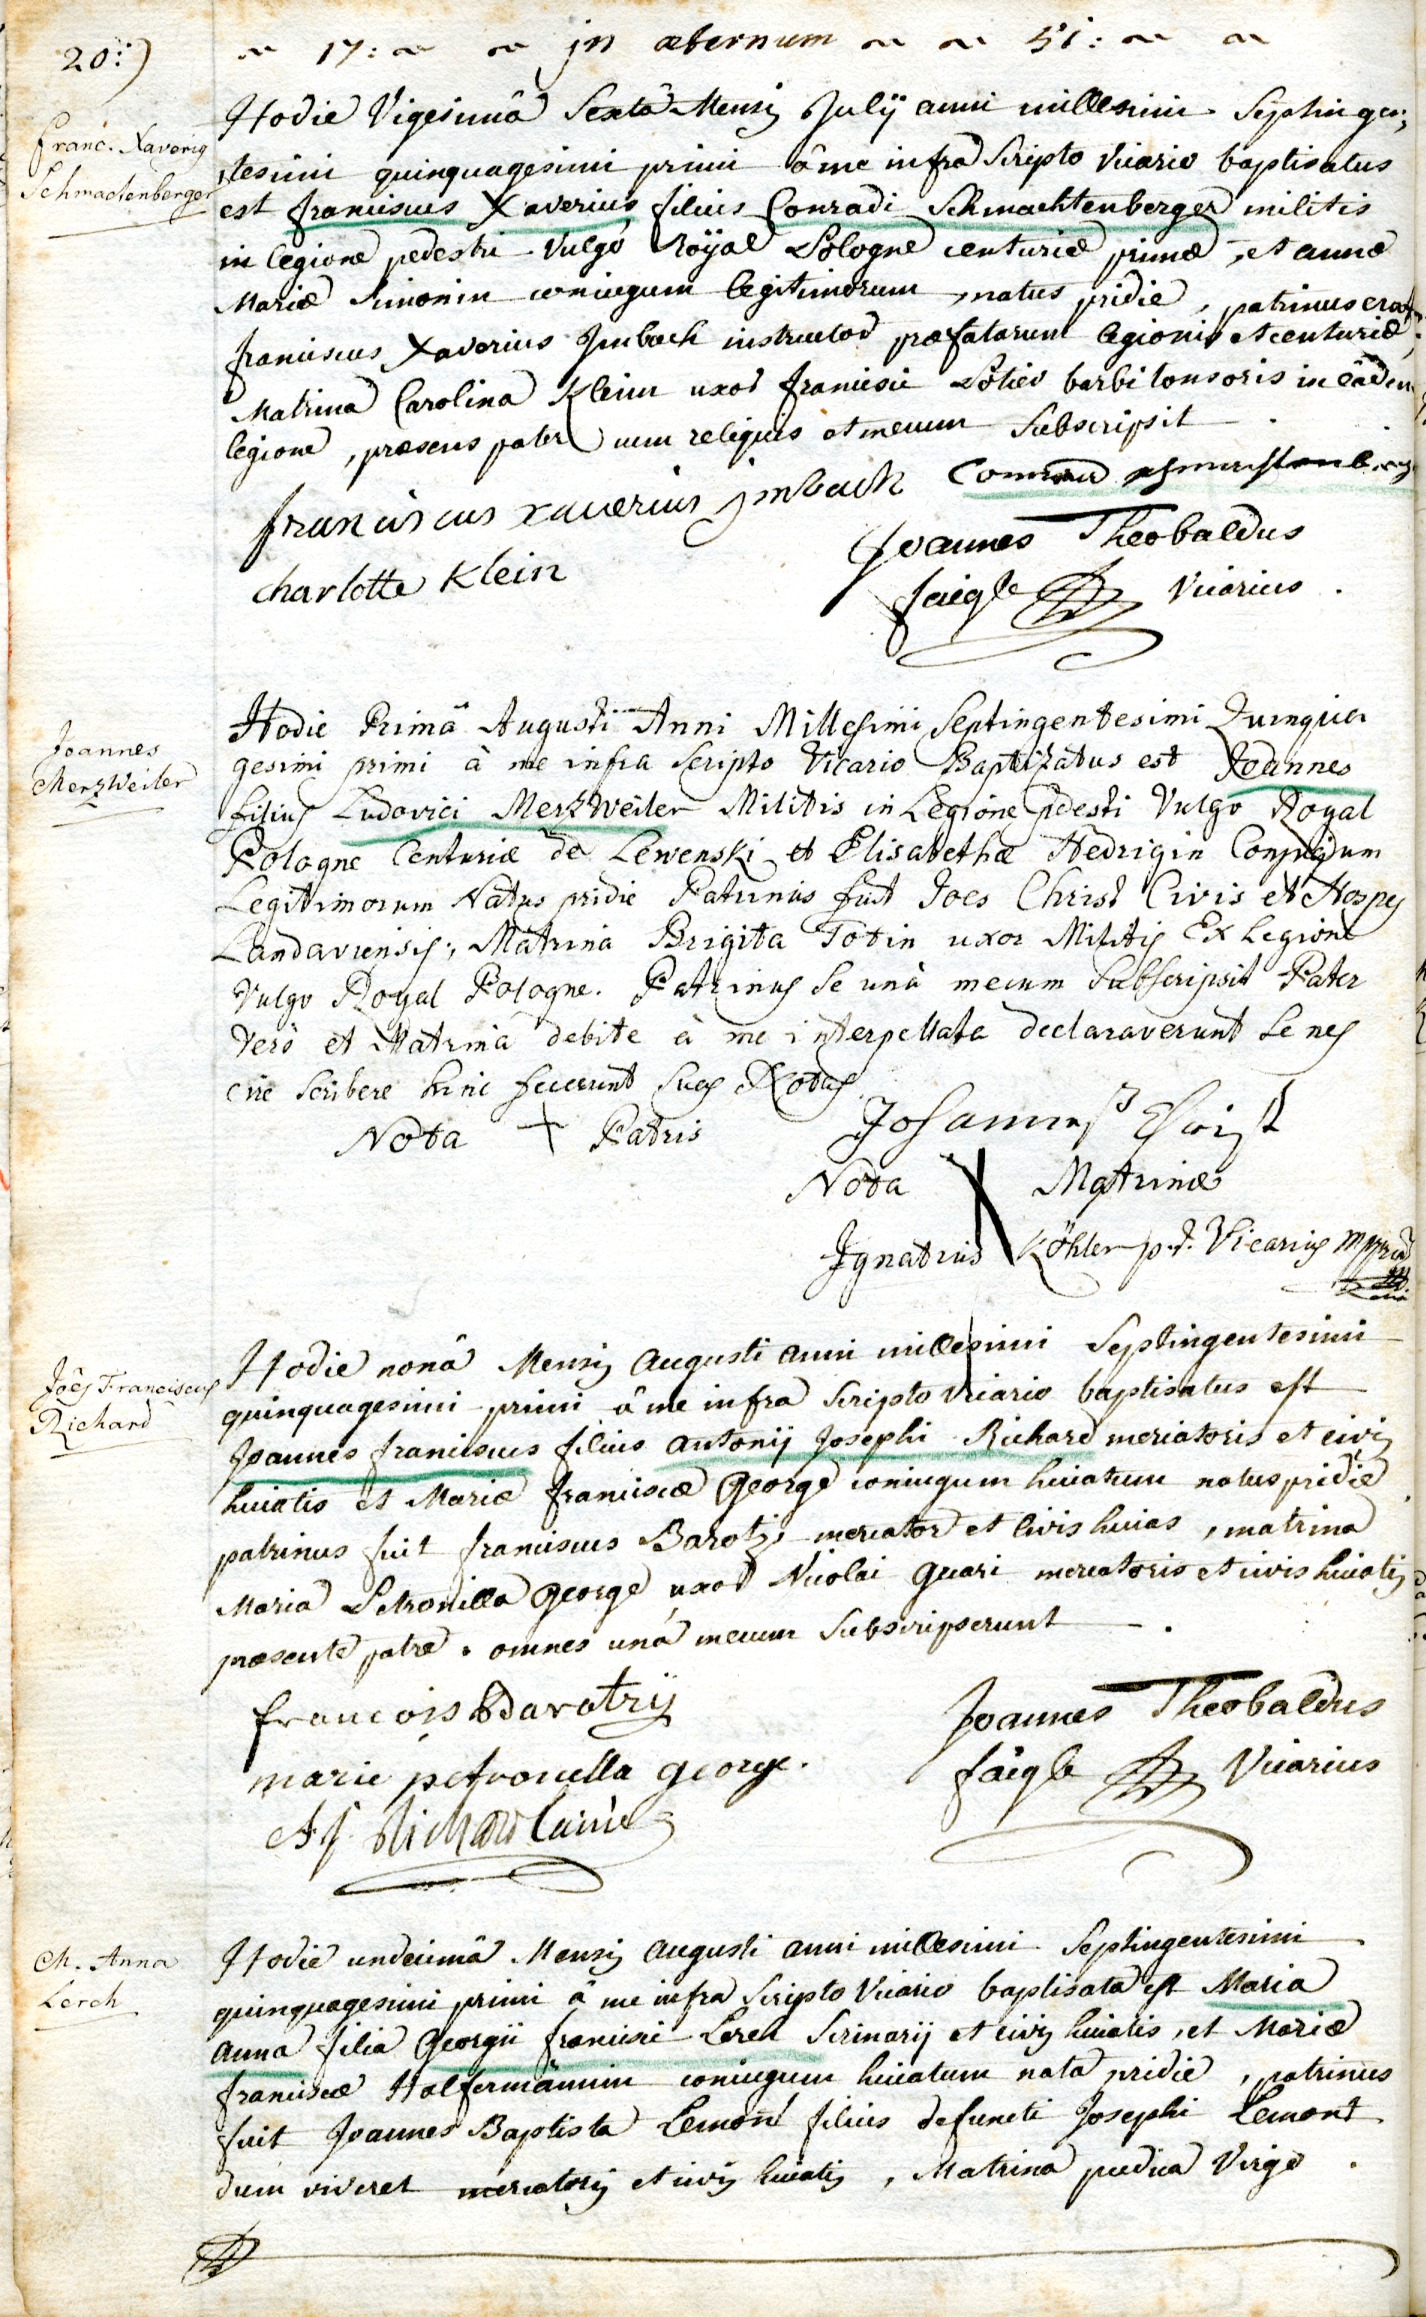 20:)
~ 17: ~ ~ in æternum ~ ~ 51: ~ ~
Franc. Xaverig
Schmachtenberger
Hodie Vigesimâ Sextâ Mensis Julÿ anni millesimi Septingen,
tesimi quinquagesimi primi â me infra Scripto Vicario baptisatus
est franciscus Xaverius filius Conradi Schmachtenberger militis
in legione pedestri vulgo Roÿal Pologne centuriæ primæ, et annæ
Mariæ Simonin coniugum legitimorum, natus pridie, patrinus erat
franciscus Xaverius Jmbach instructor præfatarum legionis et centuriæ,
Matrina Carolina Klein uxor francisci Potier barbitonsoris in eâdem
legione, præsens pater cum reliquis et mecum Subscripsit
franciscus xauerius jmbach
charlotte Klein
Joannes Theobaldus
faigle Vicarius.
Joannes
MerzWeiler
Hodie Primâ Augusti Anni Millesimi Septingentesimi Quinqua
gesimi primi à me infra Scripto Vicario Baptizatus est Joannes
filius Ludovici MerzWeiler Militis in Legione pedesti Vulgo Royal
Pologne Centuriæ de Lewenski et Elisabethæ Hedrigin Conjugum
Legitimorum Natus pridie Patrinus fuit Joes Christ Civis et Hospes
Landaviensis, Matrina Brigita Totin uxor Militis Ex Legione
Vulgo Royal Pologne. Patrinus se unà mecum Subscripsit Pater
Verò et Matrina debite à me interpellata declaraverunt se nes
cire scribere hinc fecerunt suas Notas
Nota + Patris
Johannes Christ
Nota X Matrinæ
Ignatius Köhler p.t. Vicarius mppria
Joês Franciscus
Richard
Hodie nonâ Mensis Augusti anni millesimi Septingentesimi
quinquagesimi primi â me infra Scripto Vicario baptisatus est
Joannes franciscus filius Antonij Josephi Richard mercatoris et civis
huiatis et Mariæ franciscæ George coniugum huiatum natus pridie
patrinus fuit franciscus Barotzi mercator et civis huias, matrina
Maria Petronilla George uxor Nicolai Guari mercatoris et civis huiatis
præsente patre. omnes unâ mecum Subscripserunt.
francois Baratzÿ
marie petronella george.
AJ Richard lainé
Joannes Theobaldus
faigle Vicarius
M. Anna
Lerch
Hodie undecimâ Mensis Augusti anni millesimi Septingentesimi
quinquagesimi primi â me infra Scripto Vicario baptisata est Maria
Anna filia Georgii francisci Lerch Scrinarij et civis huiatis, et Mariæ
franciscæ Halfermännin coniugum huiatum nata pridie, patrinus
fuit Joannes Baptista Lemont filius defuncti Josephi Lemont
dum viveret mercatoris et civis huiatis, Matrina pudica Virgo.